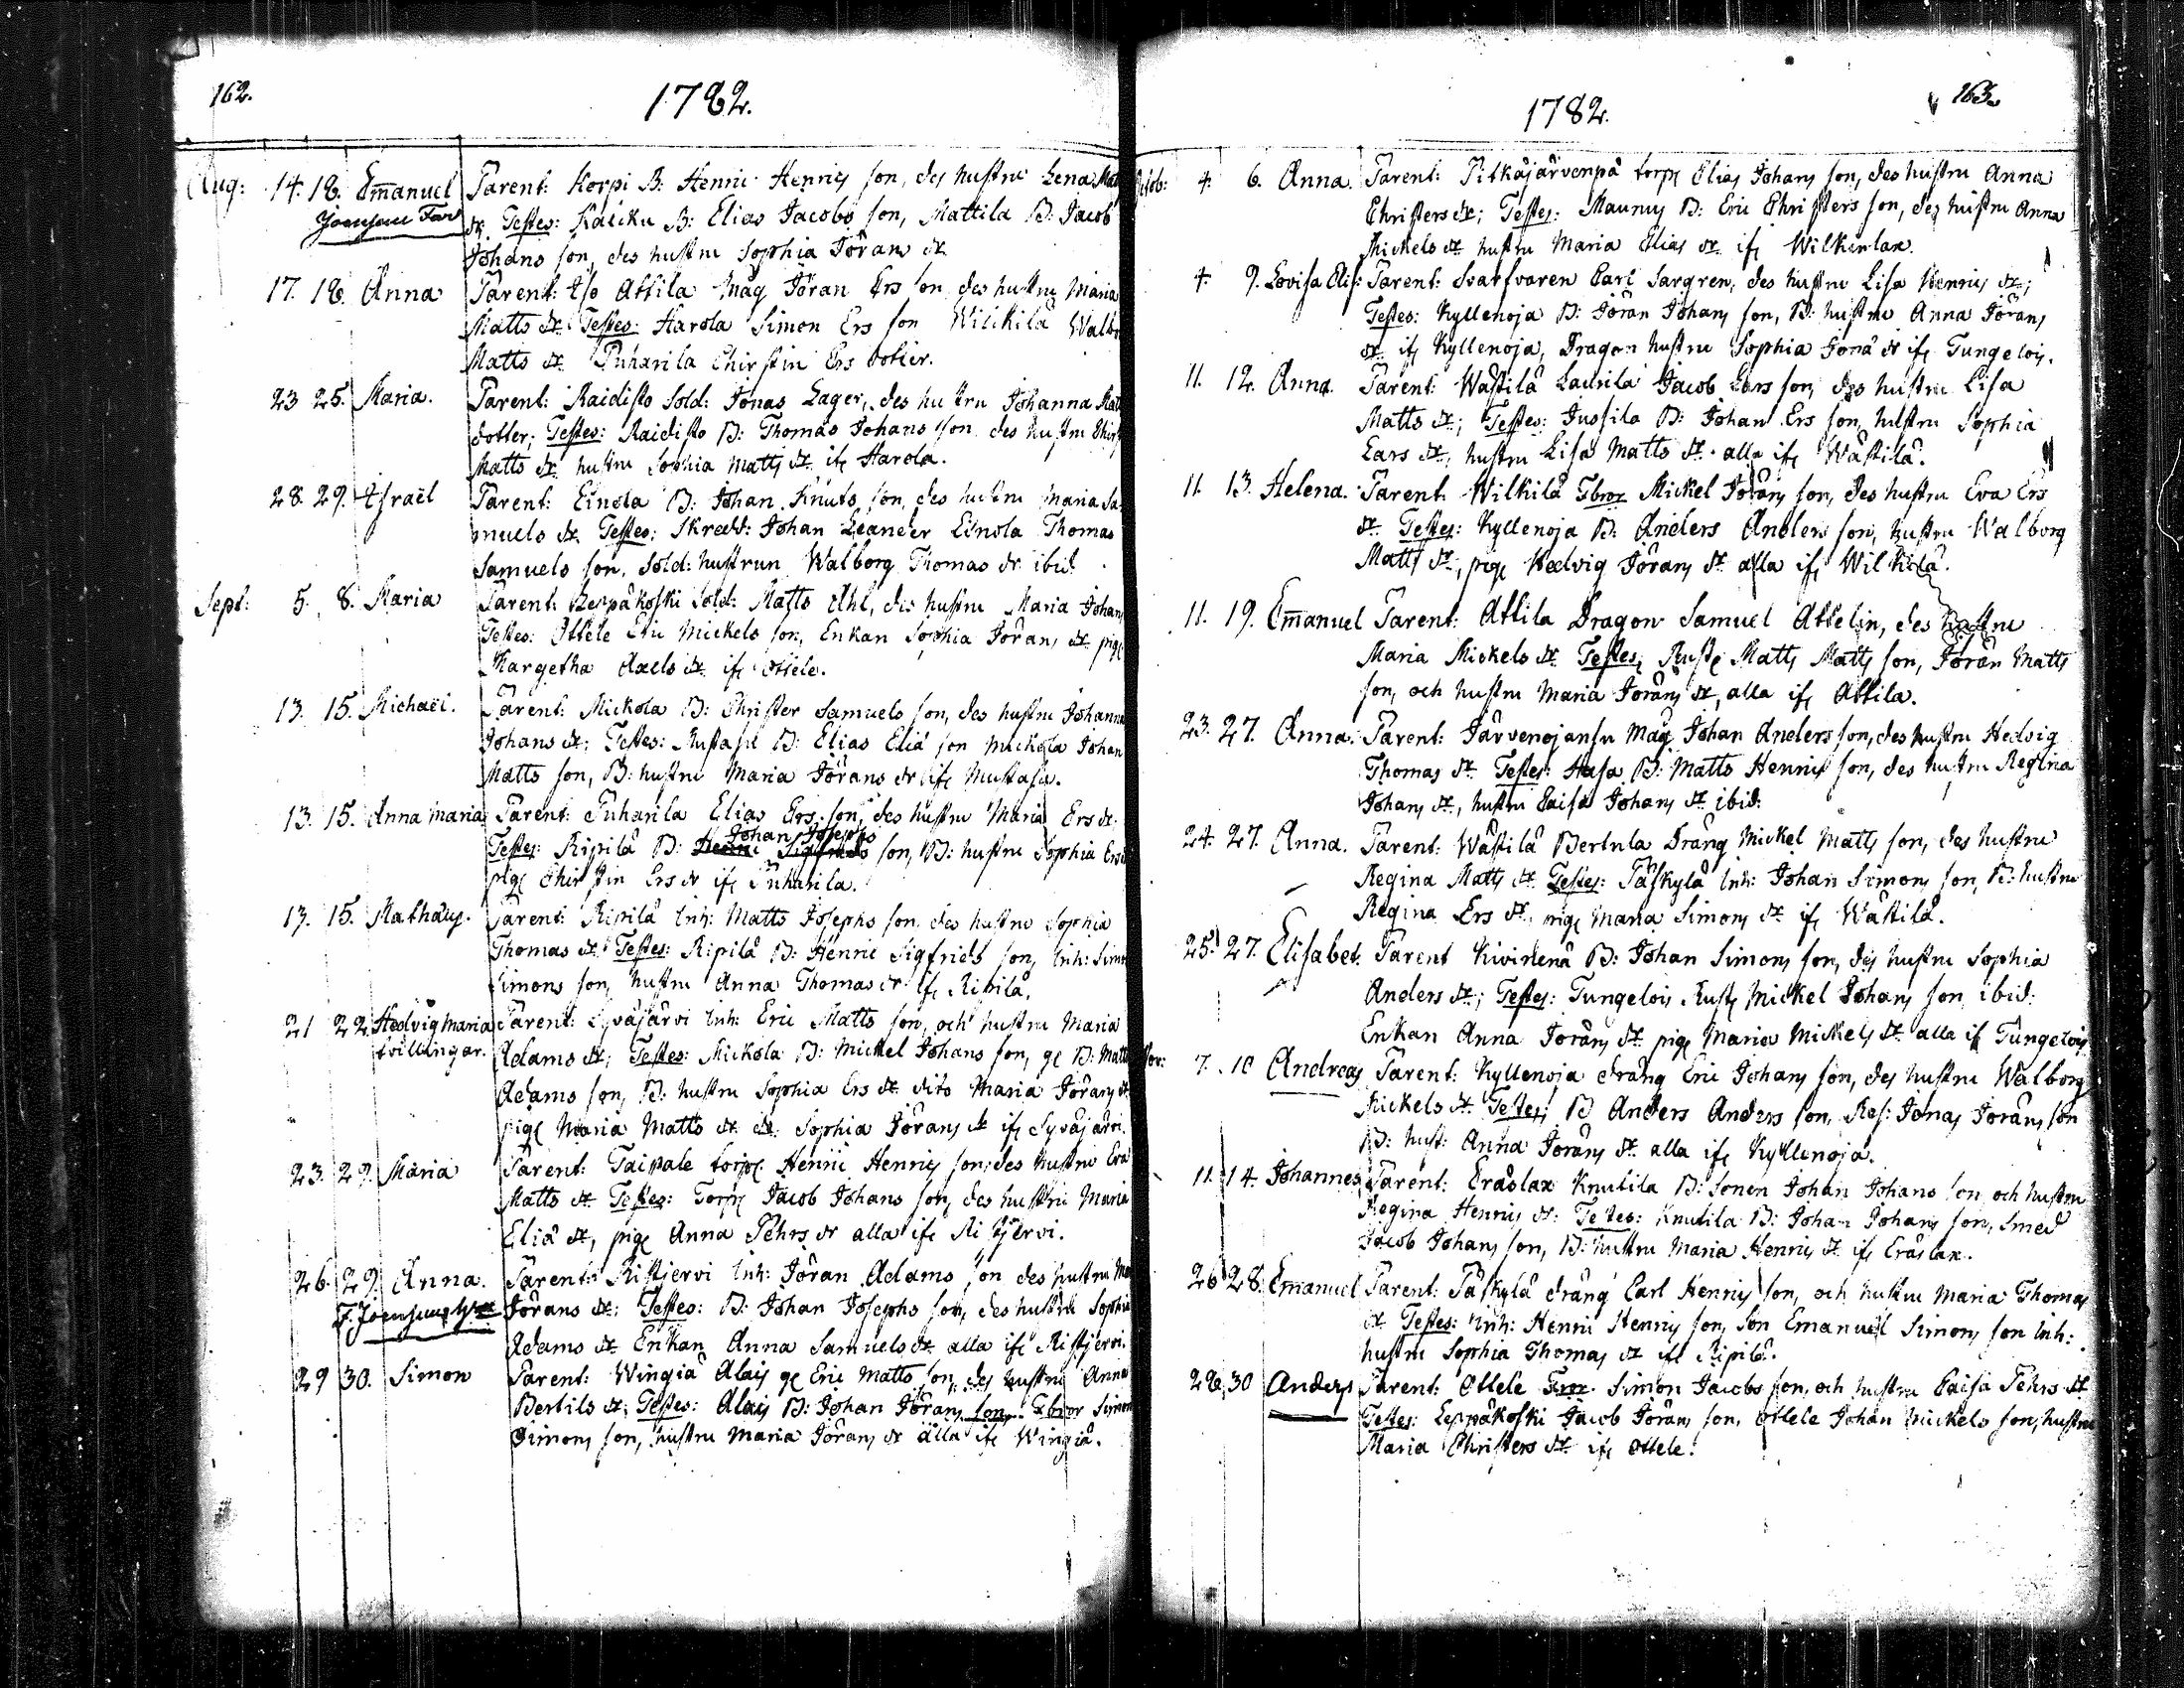 162.
1782.
Aug: 14. 18. Emanuel Parent: Korpi B: Henric Henrics son, des hustru Lena
dr. Testes: Kaliku B: Elias Jacobs son, Mattila B: Jacob
Johans son, des hustru Sophia Jörans dr
17. 18. Anna Parent: Iso Attila Måg Jöran Ers son des hustru Maria
Matts dr. Testes: Harola Simon Ers son Wilkilä
Matts dr. Puharila Chirstin Ers dotter.
23 25. Maria. Parent: Raidisto Sold: Jonas Lager, des hustru Johanna
dotter; Testes: Raidisto B: Thomas Johans son des hustru
Matts dr hustru Sophia Matts dr ifr Harola.
28. 29. Israël Parent: Einola B: Johan Knuts son, des hustru Maria Sa-
muels dr. Testes: Skrædd: Johan Leander Einola Thomas
Samuels son, Sold: hustrun Walborg Thomas dr ibid
Sept: 5. 8. Maria Parent: Leppäkoski Sold: Matts Ahl, des hustru Maria Johans
Testes: Ottele Eric Mickels son, Enkan Sophia Jörans dr. pig
Margetha Axels dr ifr Ottele.
13. 15. Michaël. Parent: Mickola B: Christer Samuels son, des hustru Johanna
Johans dr; Testes: Mustasu B: Elias Eliä son Mickola Johan
Matts son, B: hustru Maria Jörans dr ifr Mustasu.
13. 15. Anna Maria Parent: Puharila Elias Ers son, des hustru Maria Ers dr.
Johan Josephs
Testes: Ripilä B: Henric Sigfrids son, B: hustru Sophia Ers
pig Chirstin Ers dr ifr Puharila.
13. 15. Mathäus. Parent: Ripilä Inh: Matts Josephs son des hustru Sophia
Thomas dr. Testes: Ripilä B: Henric Sigfrids son, Inh:
Simons son, hustru Anna Thomas dr ifr Ripilä.
21 22 Hedvig Maria Parent: Syväjärvi Inh: Eric Matts son, och hustru Maria
tvillingar. Adams dr; Testes: Mickola B: Mickel Johans son, gl B: Matts
Adams son, B: hustru Sophia Ers dr dito Maria Jörans dr
pig Maria Matts dr dr Sophia Jörans dr ifr Syväjärvi.
23. 29. Maria Parent: Taipale torp: Henric Henrics son, des hustru Eva
Matts dr Testes: Torp: Jacob Johans son, des hustru Maria
Eliä dr, pig Anna Pehrs dr alla ifr Ristjervi.
26. 29. Anna. Parent: Ristjervi Inh: Jöran Adams son des hustru
Jörans dr; Testes: B: Johan Josephs son, des hustru Sophia
Adams dr Enkan Anna Samuels dr alla ifr Ristjervi.
29 30. Simon Parent: Wingiä Alais gl Eric Matts son, des hustru Anna
Bertils dr; Testes: Alais B: Johan Jörans son. Fbror Simon
Simons son, hustru Maria Jörans dr alla ifr Wingiä.
163.
1782.
Octob: 4. 6. Anna. Parent: Pitkäjärvenpä torp: Elias Johans son, des hustru Anna
Christers dr; Testes: Maunus B: Eric Christers son, des hustru Anna
Mickels dr hustru Maria Elias dr ifr Wilkenlax.
4. 9. Lovisa Elis: Parent: Svarfvaren Carl Sargren, des hustru Lisa Henrics dr;
Testes: Kyllenoja B: Jöran Johans son, B: hustru Anna Jörans
dr ifr Kyllenoja, Dragon hustru Sophia Jonä dr ifr Tungelois.
11. 12. Anna. Parent: Wästilä Laurila Jacob Lars son, des hustru Lisa
Matts dr; Testes: Jussila B: Johan Ers son, hustru Sophia
Lars dr, hustru Lisa Matts dr alla ifr Wästilä.
11. 13. Helena. Parent: Wilkilä Fbror Mickel Jörans son, des hustru Eva Ers
dr Testes: Kyllenoja B: Anders Anders son, hustru Walborg
Matts dr, pig Hedvig Jörans dr alla ifr Wilkilä.
11. 19. Emanuel Parent: Attila Dragon Samuel Attelin, des hustru
Maria Mickels dr Testes: Rust: Matts Matts son, Jöran Matts
son, och hustru Maria Jörans dr, alla ifr Attila.
23. 27. Anna. Parent: Järvenojansu Måg Johan Anders son, des hustru Hedvig
Thomas dr Testes: Hasa B: Matts Henrics son, des hustru Regina
Johans dr, hustru Caisa Johans dr ibid:
24. 27. Anna. Parent: Wästilä Bertula Dräng Mickel Matts son, des hustru
Regina Matts dr Testes: Päskylä Inh: Johan Simons son, B: hustru
Regina Ers dr pig Maria Simons dr ifr Wästilä.
25. 27. Elisabet. Parent Kivirena B: Johan Simons son, des hustru Sophia
Anders dr; Testes: Tungelois Rust: Mickel Johans son ibid:
Enkan Anna Jörans dr pig Maria Mickels dr alla if Tungelois
Nov: 7. 10 Andreas Parent: Kyllenoja dräng Eric Johans son, des hustru Walborg
Mickels dr Testes: B Anders Anders son, Res: Jonas Jörans son
B: hust: Anna Jörans dr alla ifr Kyllenoja.
11. 14. Johannes Parent: Eräslax Knutila B: sonen Johan Johans son och hustru
Regina Henrics dr: Testes: Knutila B: Johan Johans son, Smed
Jacob Johans son, B: hustru Maria Henrics dr ifr Eräslax.
26 28. Emanuel Parent: Päskylä dräng Carl Henrics son, och hustru Maria Thomas
dr Testes: Inh: Henric Henrics son, Son Emanuel Simons son Inh:
hustru Sophia Thomas dr ifr Ripilä.
28. 30 Anders Parent: Ottele Simon Jacobs son, och hustru Caisa Pehrs dr
Testes: Leppäkoski Jacob Jörans son, Ottele Johan Mickels son, hustru
Maria Christers dr ifr Ottele.